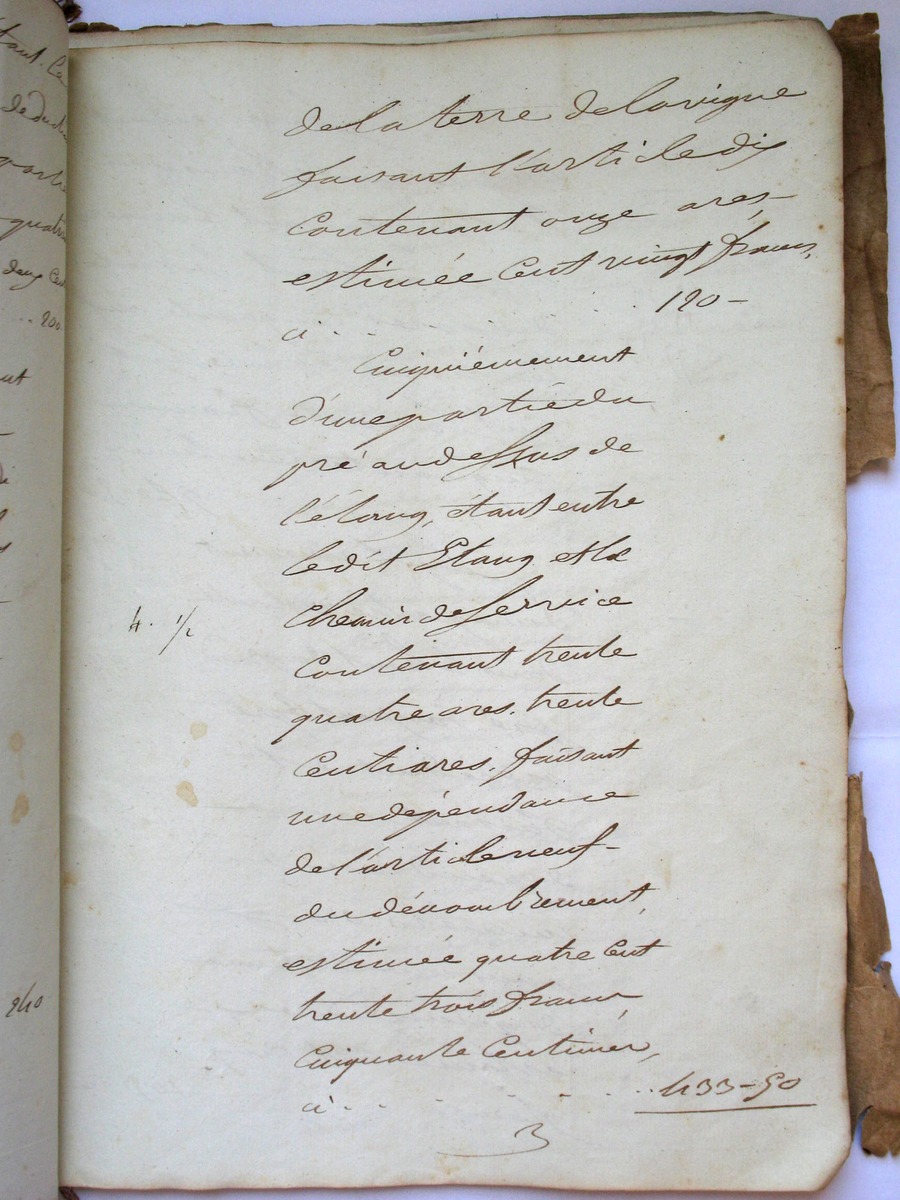 de la terre de la vigne
faisant l'article dix
Contenant onze ares,
estimée Cent vingt francs,
ci . . . . . . . 120 -
Cinquiémement
d'une partie du
pré au dessus de
l'étang, étant entre
ledit Etang et le
chemin de service
4. 1/2
Contenant trente
quatre ares. trente
Centiares, faisant
une dépendance
de l'article neuf
du dénombrement,
estimée quatre Cent
trente trois francs
Cinquante Centimes,
ci . . . . . . . 433-50
3
200
240